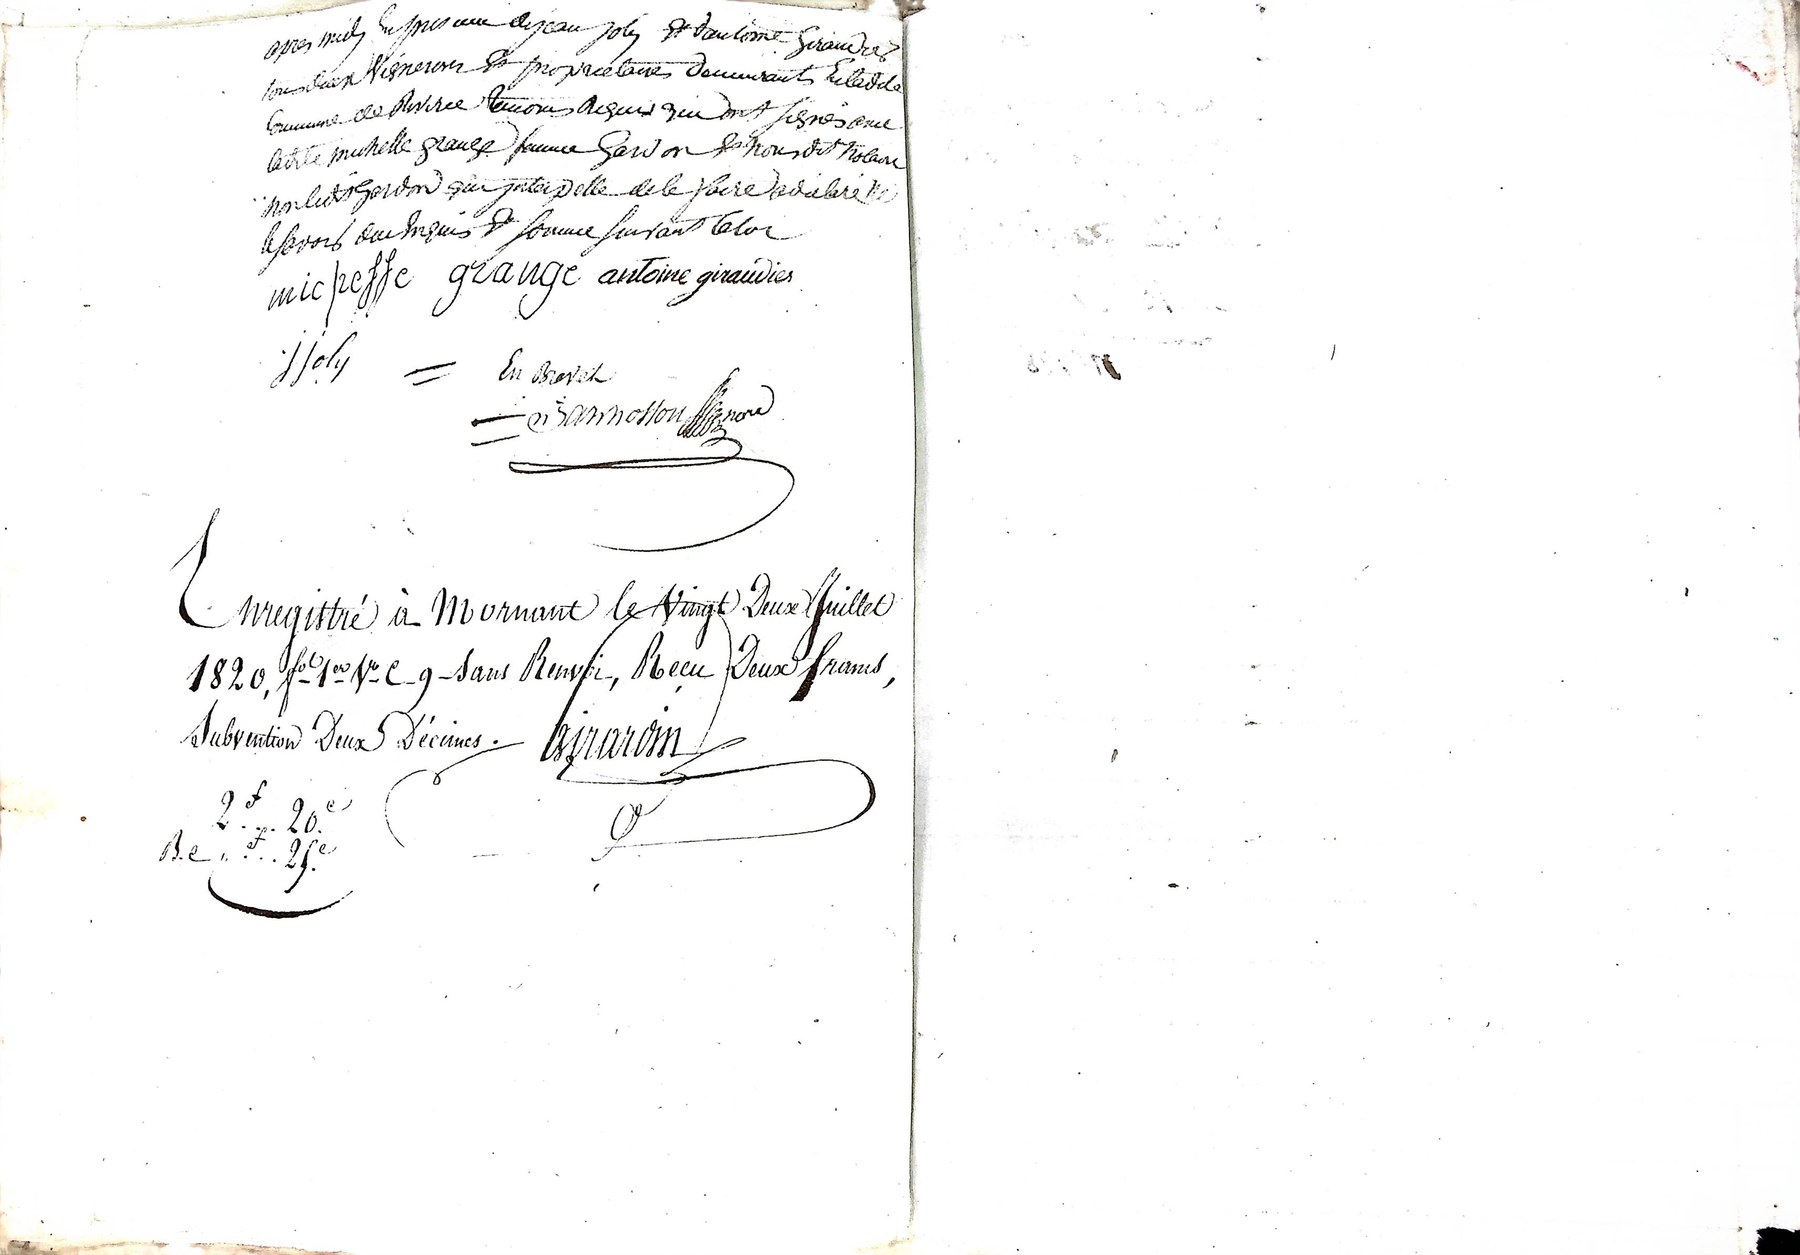 apres midy En presence de jean joly Et d'antoine Giraudier
tous deux Vignerons Et proprietaires demeurants En la dite
Commune de temoins Requis qui ont signés avec
ladite michelle grange femme Gardon Et nous dit Notaire
non ledit Gardon qui interpellé de le faire a déclaré ne
le savoir Enquis Et sommé suivant la loi
michelle grange antoine giraudier
j joly = En Brevet
Enregistré à Mornant le Vingt Deux Juillet
1820, fol 1er Vo C 9 - Sans Renvoi, Reçu Deux francs,
Subvention Deux Décimes. Girardin
2f .. 20.c
B.e ,, f .. 25.c